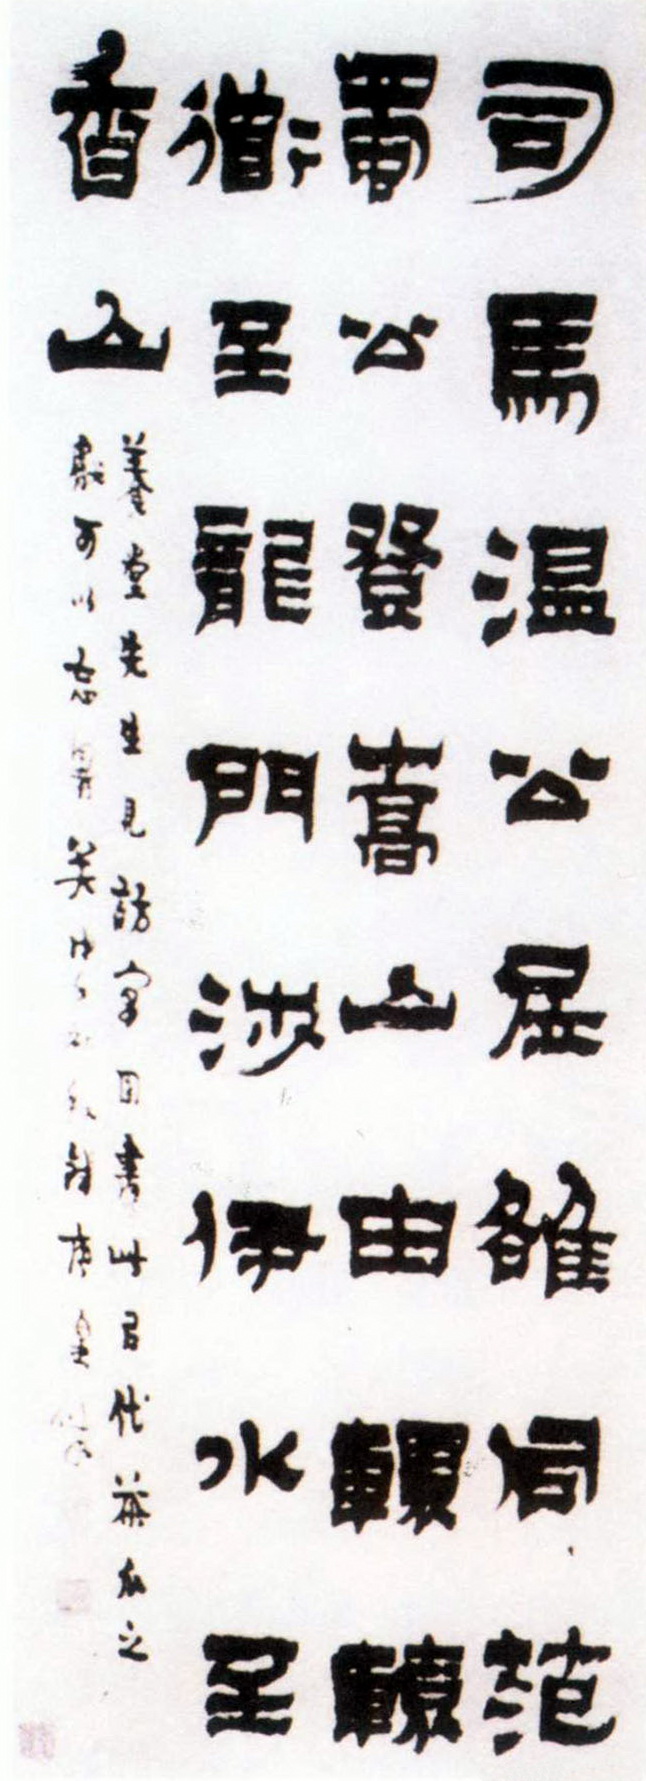 司馬温公居雒同范
蜀公登嵩山由轘轅
衟至龍門涉伊水至
香山
堂先生見訪書此代茶瓜之
獻可以忘暑矣